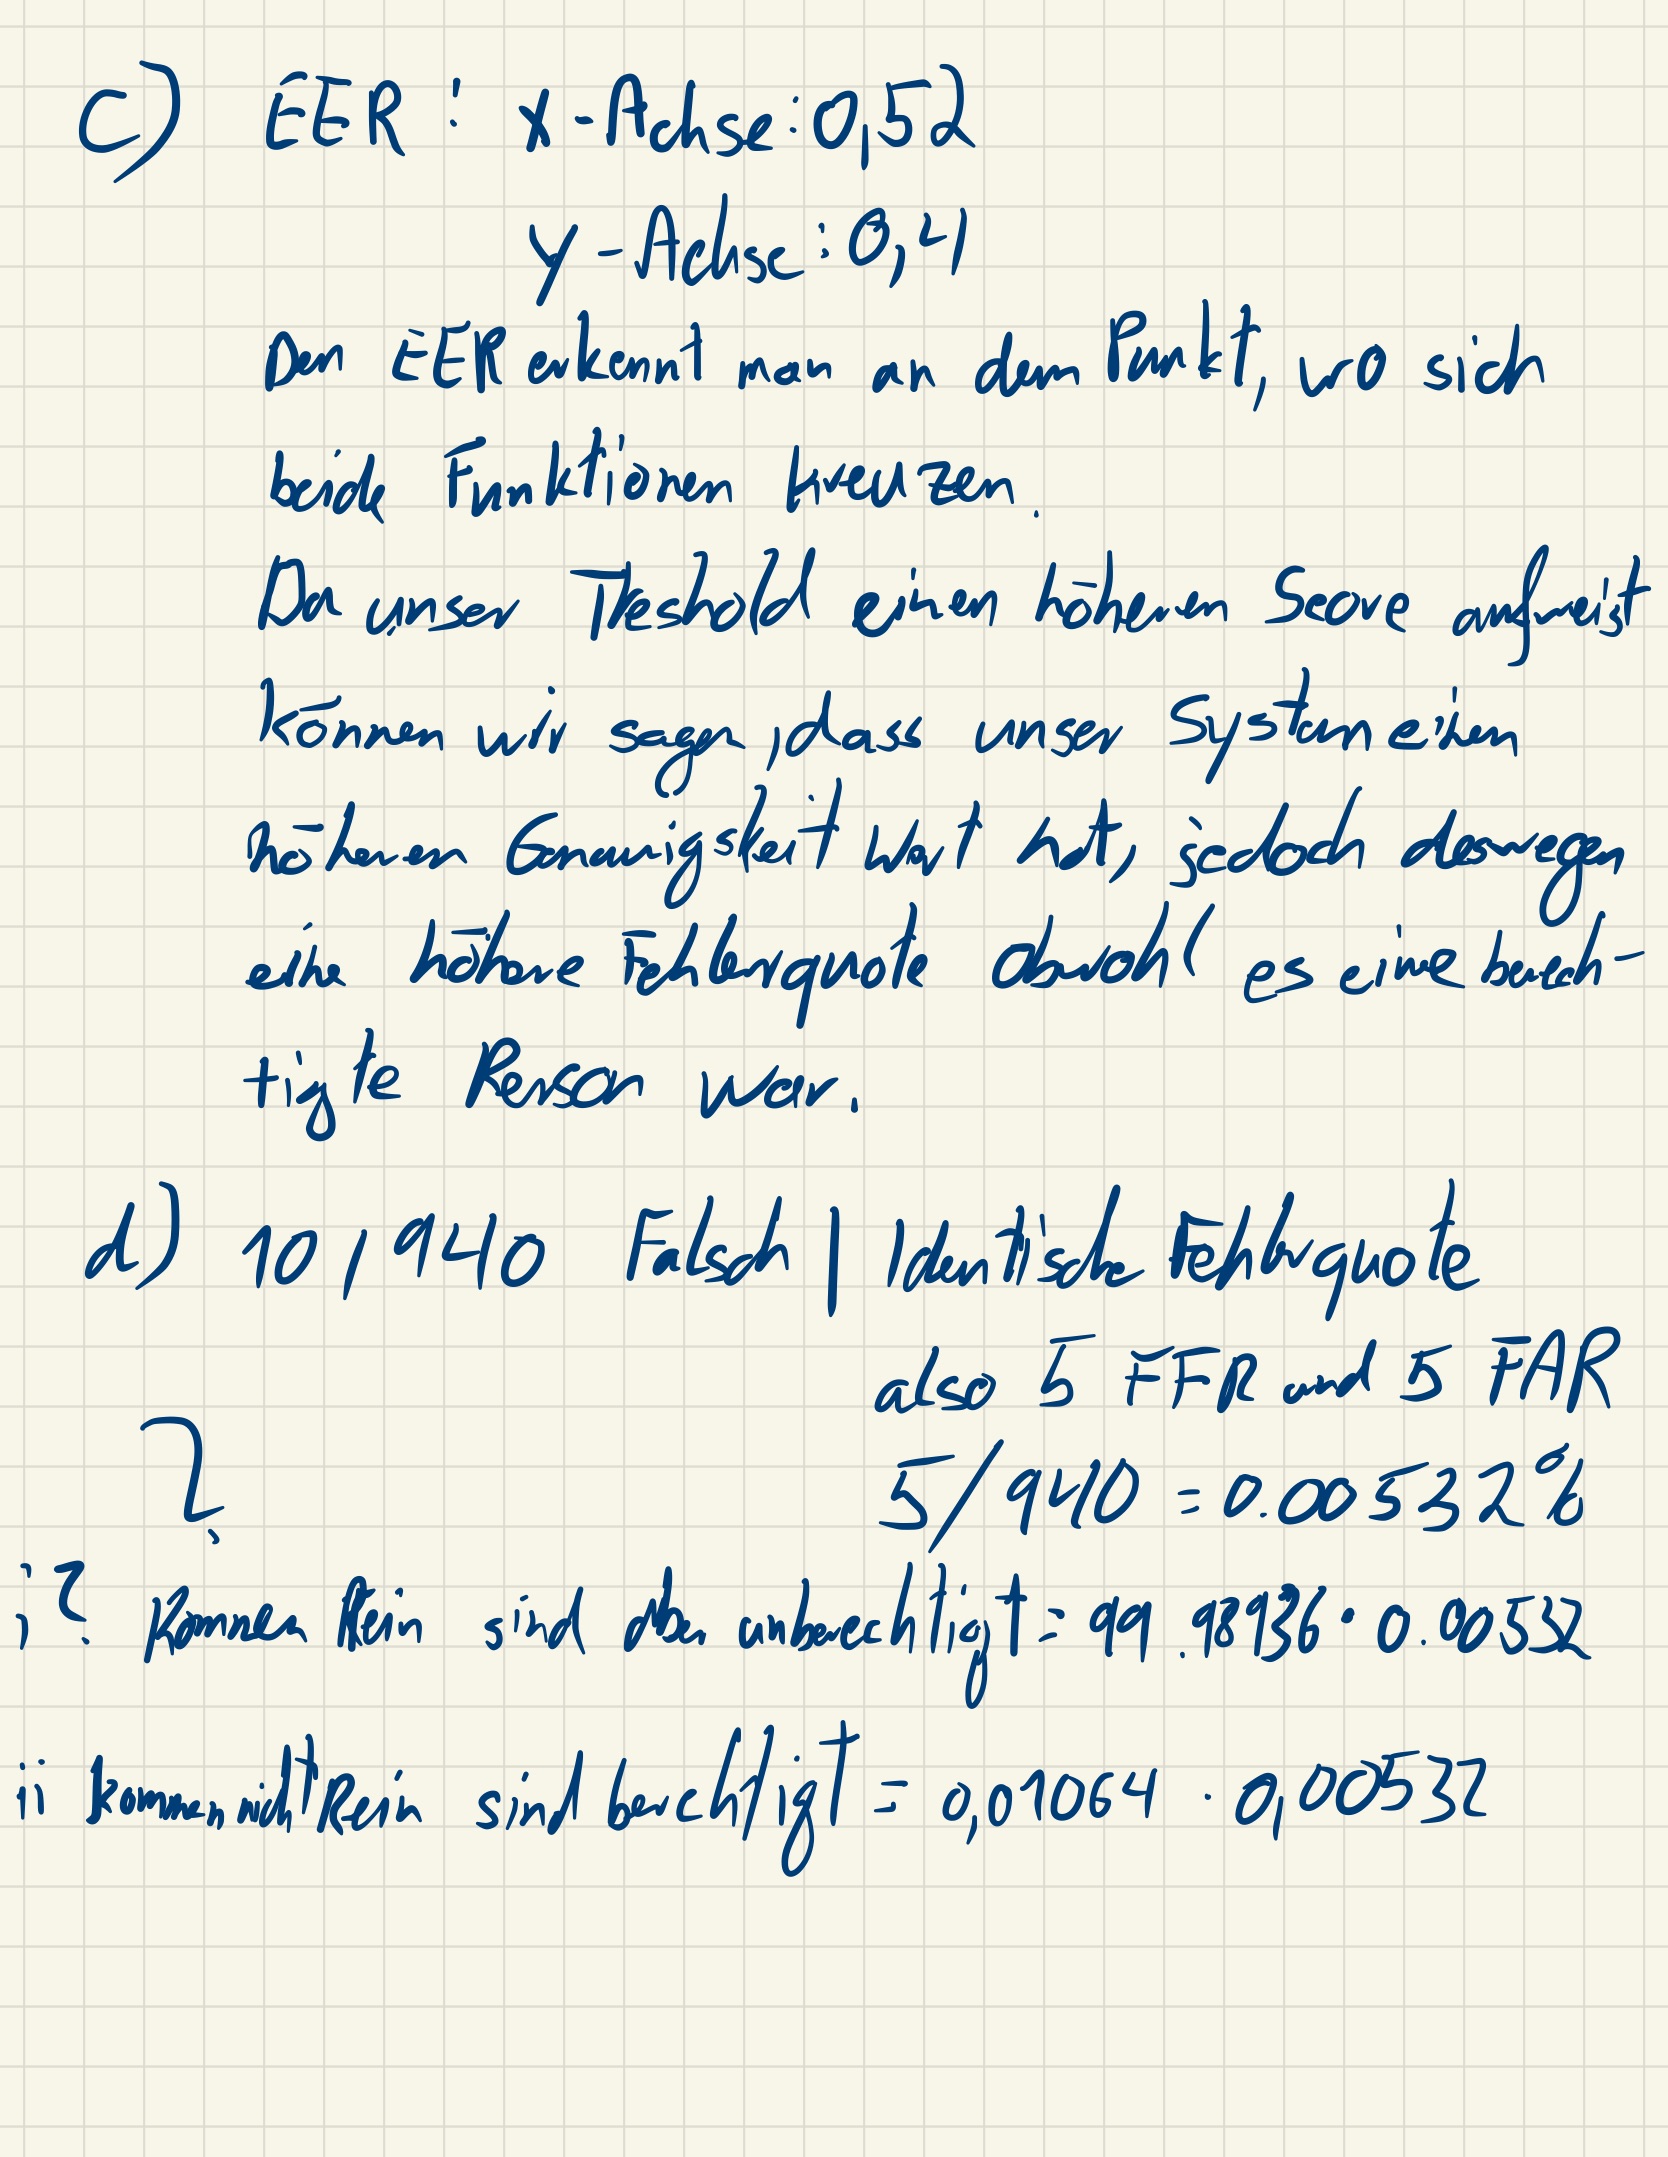 c) EER: x-Achse: 0,52
y-Achse: 0,41
Den EER erkennt man an dem Punkt, wo sich
beide Funktionen kreuzen.
Da unser Treshold einen höheren Score aufweist
können wir sagen, dass unser System einen
höheren Genauigskeit Wert hat, jedoch deswegen
eine höhere Fehlerquote obwohl es eine berech-
tigte Person war.
d) 10,940 Falsch | Identische Fehlerquote
also 5 FFR und 5 FAR
?
5/940 = 0.00532%
i? Kommen Rein sind aber unberechtigt = 99.98936 · 0.00532
ii kommen nicht Rein sind berechtigt = 0,01064 · 0,00532